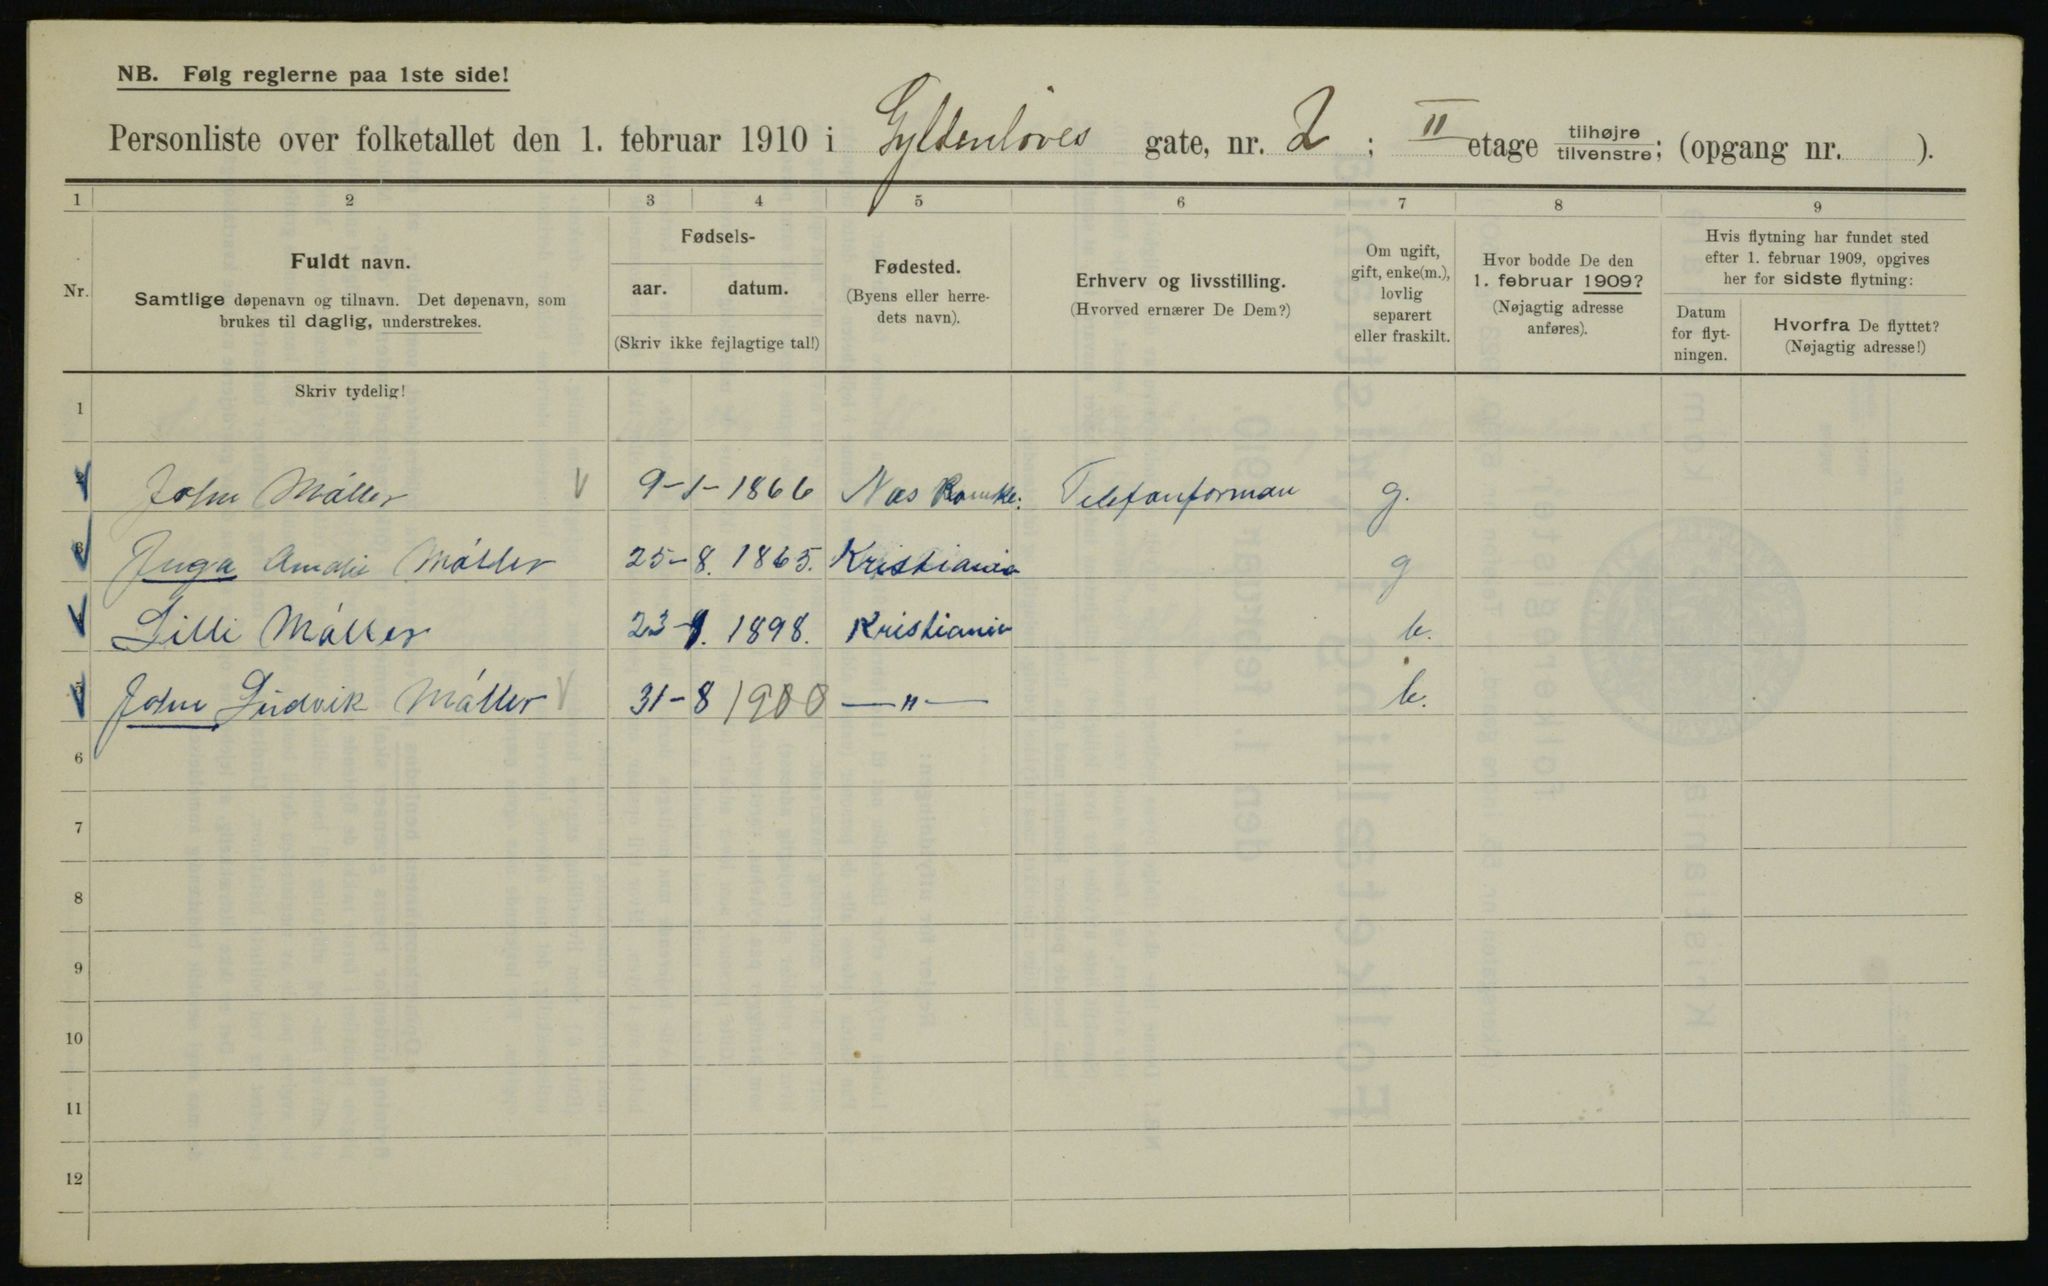 NB. Følg reglerne paa 1ste side!
Personliste over folketallet den 1. februar 1910 i Gyldenløves gate, nr. 2 ; II etage tilhøjre tilvenstre; (opgang nr. ).
1 2 3 4 5 6 7 8 9
Nr.
Fuldt navn.
Samtlige døpenavn og tilnavn. Det døpenavn, som
brukes til daglig, understrekes.
Fødsels-
aar. datum.
(Skriv ikke fejlagtige tal!)
Fødested.
(Byens eller herre-
dets navn).
Erhverv og livsstilling.
(Hvorved ernærer De Dem?)
Om ugift,
gift, enke(m.),
lovlig
separert
eller fraskilt.
Hvor bodde De den
1. februar 1909?
(Nøjagtig adresse
anføres).
Hvis flytning har fundet sted
efter 1. februar 1909, opgives
her for sidste flytning:
Datum
for flyt-
ningen.
Hvorfra De flyttet?
(Nøjagtig adresse!)
Skriv tydelig!
1
John Møller 9-1-1866 Næs Romke: Telefonforman g.
Inga Amalie Møller 25-8. 1865. Kristiania g
Lilli Møller 23- . 1898. Kristiania
John Ludvik Møller 31-8 1900 —"—
6
7
8
9
10
11
12